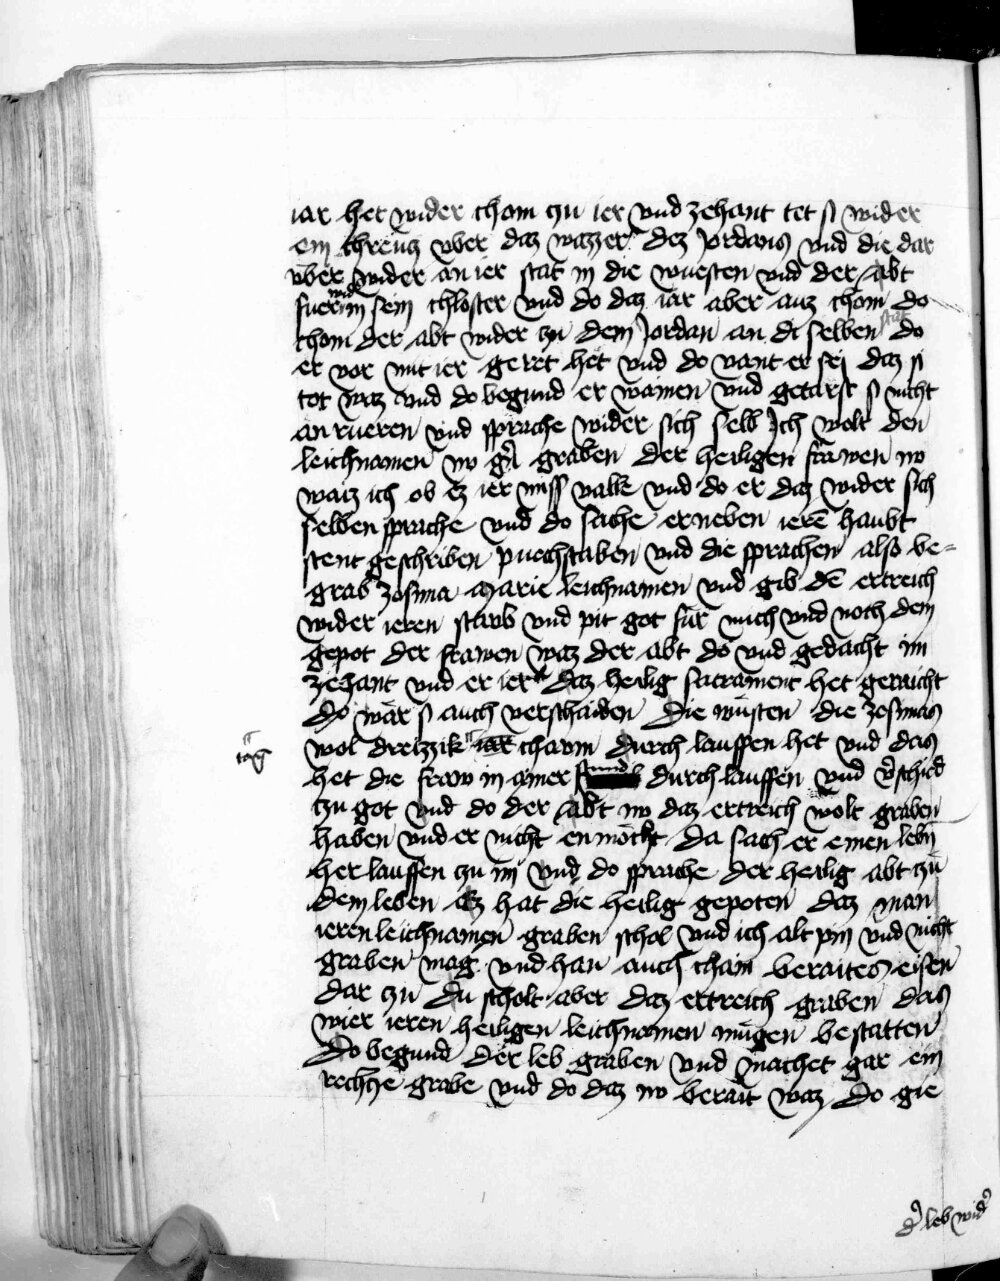 iar her wider chom czu ier vnd zehant tet si wider
ein chreucz vber daz wazzer dez Jordans vnd die dar
vber wider an ier stat in die wuesten vnd der Abt
fuer wid in sein chloster vnd do daz iar aber auz chom do
chom der abt wider zu dem Jordan an di selben stat do
er vor mit ier geret het vnd do vant er sei daz si
tot waz vnd do begund er wainen vnd getarst si nicht
an rueren vnd sprache wider sich selb Ich wolt den
leichnamen nv graben der heiligen frawen nv
waiz ich ob ez ier miss valle vnd do er daz wider sich
selben sprache vnd do sache er neben ierē haubt
stent geschriben puechstaben vnd die sprachen also be-
grab zosima Marie leichnamen vnd gib dē ertreich
wider ieren staub vnd pit got für mich vnd noch dem
gepot der frawen waz der abt do vnd gedacht im
zehant vnd er ier daz heilig sacrament het geraicht
do wär si auch verschaiden Die wüsten die zosimas
wol dreizzik iar chawm durch lauffen het vnd das
tag
het die fraw in ainer stund durch lauffen vnd vschied
czu got vnd do der Abt nv daz ertreich wolt graben
haben vnd er nicht en mocht da sach er einen lebn
her lauffen czu im vnd do sprache der heilig abt zu
dem leben Ez hat die heilig gepoten daz man
ieren leichnamen graben schol vnd ich alt pin vnd nicht
graben mag vnd han auch chain beraites eisen
dar czu du scholt aber daz ertreich graben das
wier ieren heiligen leichnamen mügen bestatten
Do begund der leb graben vnd machet gar ein
rechte grabe vnd do daz nv berait waz Do gie
d leb wid